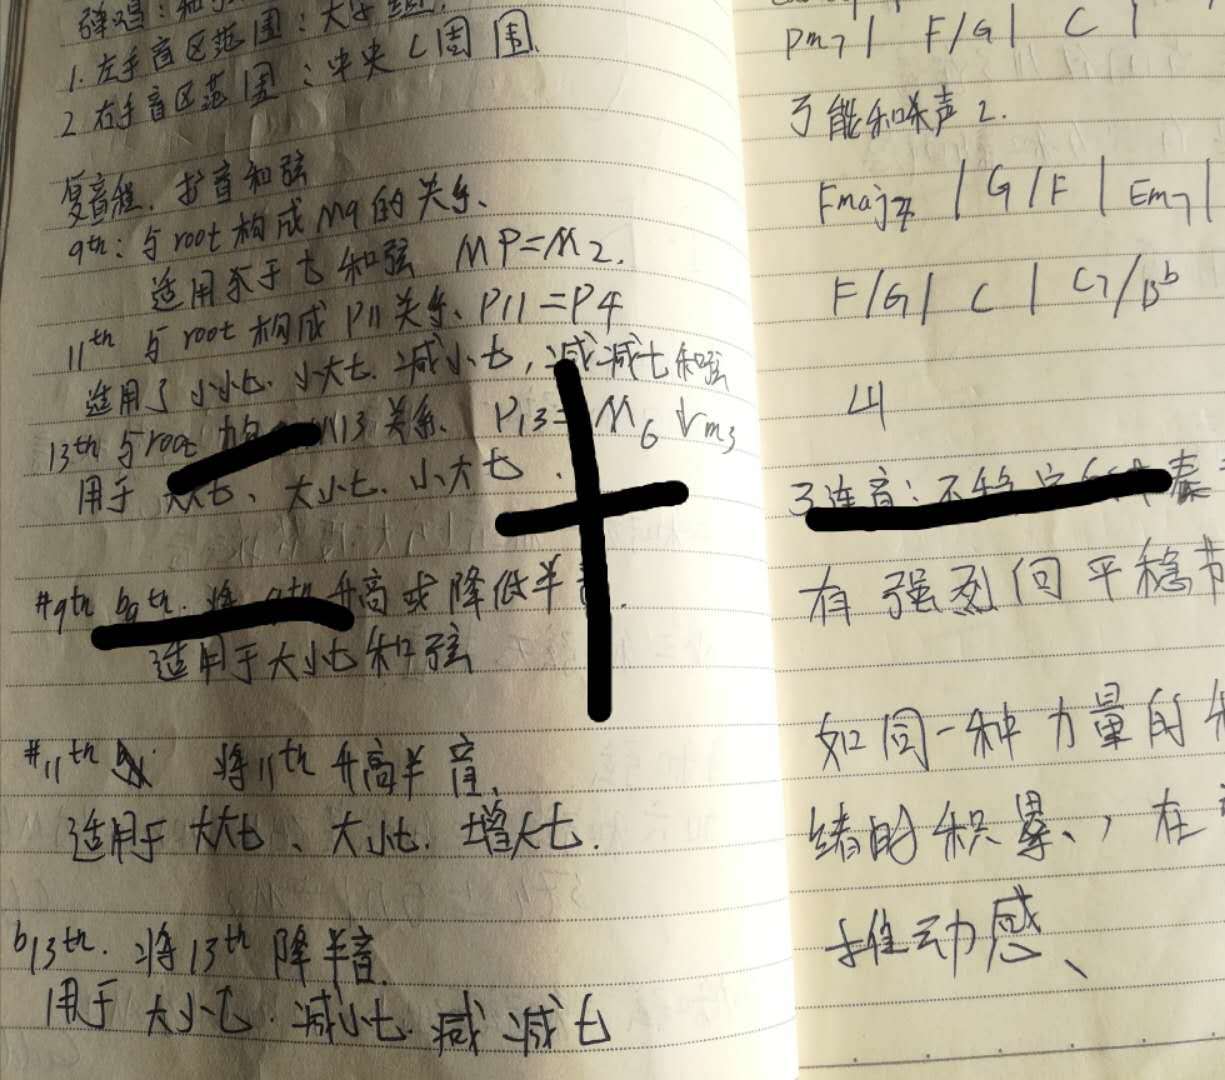 1. 左手音区范围：大字组.
2 右手音区范围：中央C周围.
复音程. 扩音和弦
9th: 与root构成M9的关系、
适用于七和弦 M9=M2.
11th 与root构成P11关系、P11=P4
适用于小小七. 小大七. 减小七, 减减七和弦
13th 与root 13关系. P13=M6 ↓m3
用于 大大七、大小七. 小大七.
#9th b9th. 将9th升高或降低半音.
适用于大小七和弦
#11th 将11th升高半音、
适用于大大七、大小七. 增大七.
b13th. 将13th降半音.
用于大小七. 减小七. 减减七
Dm7 | F/G | C |
功能和声2.
Fmaj7 | G/F | Em7 |
F/G | C | C7/Bb
山
3连音: 不稳定 奏
有强烈回平稳节
如同一种力量的
绪的积累、, 在
推动感、